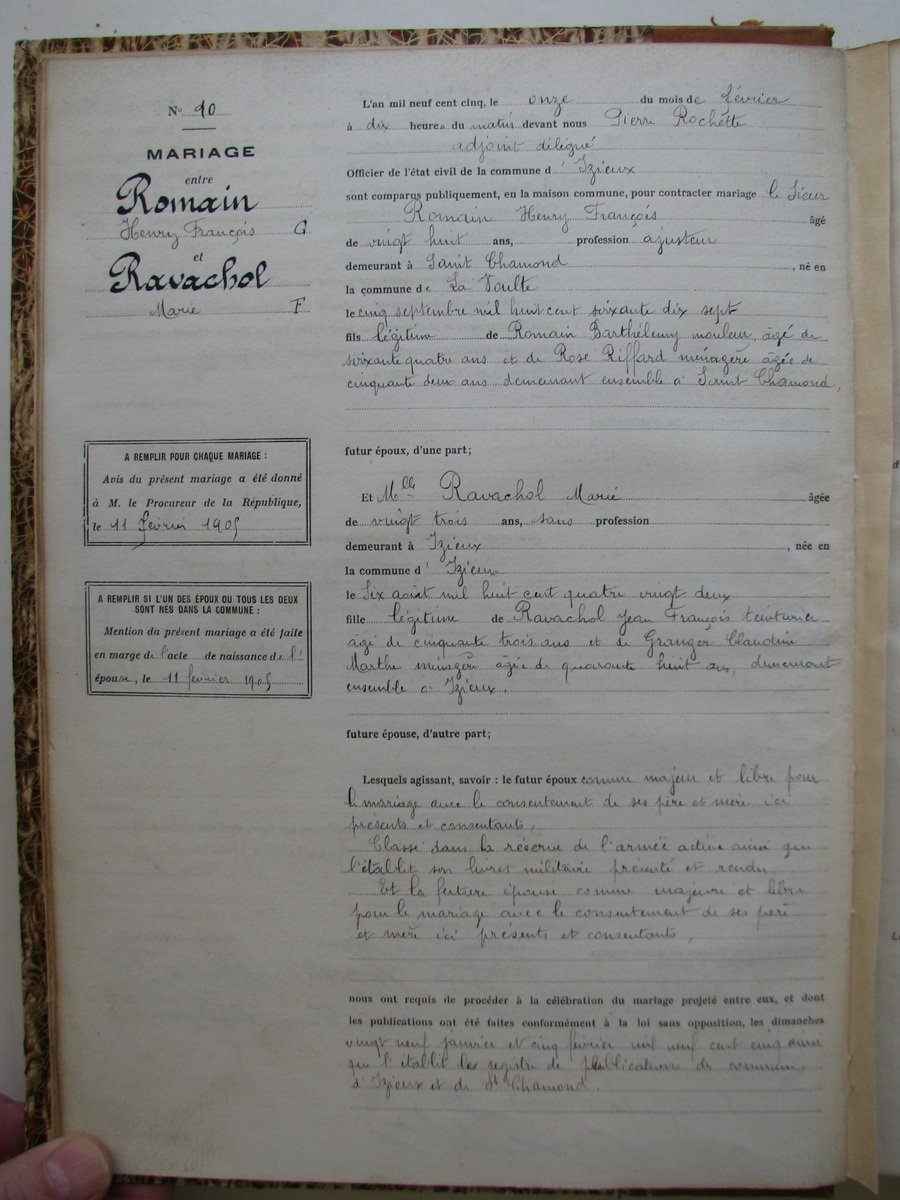 N° 10
MARIAGE
entre
Romain
Henry François G
et
Ravachol
Marie F
A REMPLIR POUR CHAQUE MARIAGE :
Avis du présent mariage a été donné
à M. le Procureur de la République,
le 11 février 1905
A REMPLIR SI L'UN DES ÉPOUX OU TOUS LES DEUX
SONT NÉS DANS LA COMMUNE :
Mention du présent mariage a été faite
en marge de l'acte de naissance de l'
épouse, le 11 février 1905
L'an mil neuf cent cinq, le onze du mois de février
à dix heures du matin devant nous Pierre Rochette
adjoint délégué
Officier de l'état civil de la commune d'Izieux
sont comparus publiquement, en la maison commune, pour contracter mariage le Sieur
Romain Henry François âgé
de vingt huit ans, profession ajusteur
demeurant à Saint Chamond, né en
la commune de La Voulte
le cinq septembre mil huit cent soixante dix sept
fils légitime de Romain Barthélemy mouleur, âgé de
soixante quatre ans et de Rose Riffard ménagère âgée de
cinquante deux ans demeurant ensemble à Saint Chamond,
futur époux, d'une part;
Et Mlle Ravachol Marie âgée
de vingt trois ans, sans profession
demeurant à Izieux, née en
la commune d'Izieux
le Six août mil huit cent quatre vingt deux
fille légitime de Ravachol Jean François teinturier
âgé de cinquante trois ans et de Granger Claudine
Marthe ménagère âgée de quarante huit ans, demeurant
ensemble à Izieux,
future épouse, d'autre part;
Lesquels agissant, savoir : le futur époux comme majeur et libre pour
le mariage avec le consentement de ses père et mère ici
présents et consentants,
Classé dans la réserve de l'armée active ainsi que
l'établit son livret militaire présenté et rendu
Et la future épouse comme majeure et libre
pour le mariage avec le consentement de ses père
et mère ici présents et consentants,
nous ont requis de procéder à la célébration du mariage projeté entre eux, et dont
les publications ont été faites conformément à la loi sans opposition, les dimanches
vingt neuf janvier et cinq février mil neuf cent cinq ainsi
que l'établit les registre de publications des communes
d'Izieux et de St Chamond.